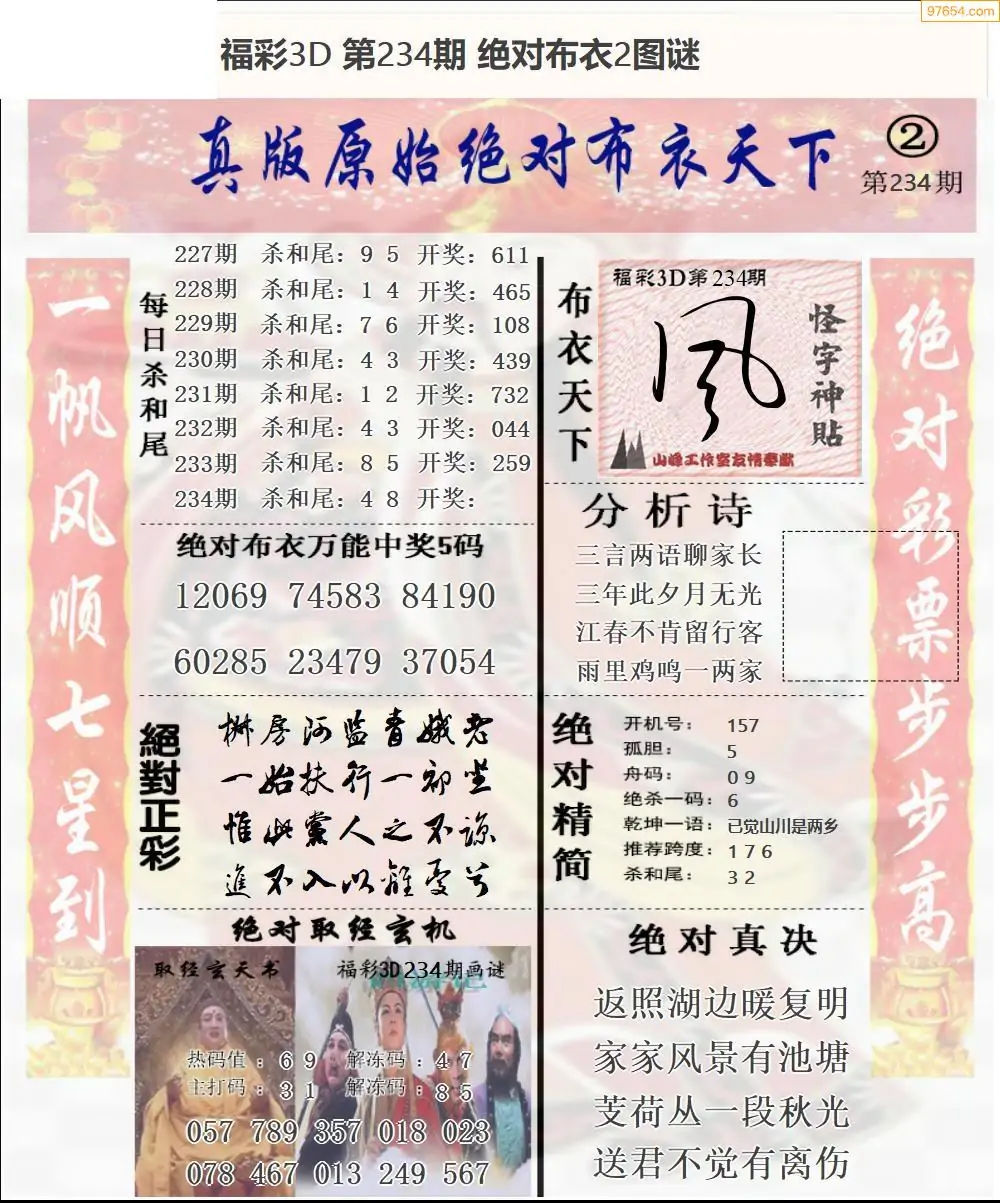 97654.com
福彩3D 第234期 绝对布衣2图谜
真版原始绝对布衣天下
②
第234期
一帆风顺七星到
每日杀和尾
227期 杀和尾：9 5 开奖：611
228期 杀和尾：1 4 开奖：465
229期 杀和尾：7 6 开奖：108
230期 杀和尾：4 3 开奖：439
231期 杀和尾：1 2 开奖：732
232期 杀和尾：4 3 开奖：044
233期 杀和尾：8 5 开奖：259
234期 杀和尾：4 8 开奖：
绝对布衣万能中奖5码
12069 74583 84190
60285 23479 37054
絕對正彩
椒房阿监青娥老
一始扶行一初坐
惟此黨人之不諒
進不入以離憂兮
绝对取经玄机
取经玄天书
福彩3D234期画谜
热码值：6 9 解冻码：4 7
主打码：3 1 解冻码：8 5
057 789 357 018 023
078 467 013 249 567
布衣天下
福彩3D第234期
风
怪字神貼
山峰工作室友情奉献
分析诗
三言两语聊家长
三年此夕月无光
江春不肯留行客
雨里鸡鸣一两家
绝对精简
开机号：157
孤胆：5
舟码：0 9
绝杀一码：6
乾坤一语：已觉山川是两乡
推荐跨度：1 7 6
杀和尾：3 2
绝对真决
返照湖边暖复明
家家风景有池塘
芰荷丛一段秋光
送君不觉有离伤
绝对彩票步步高